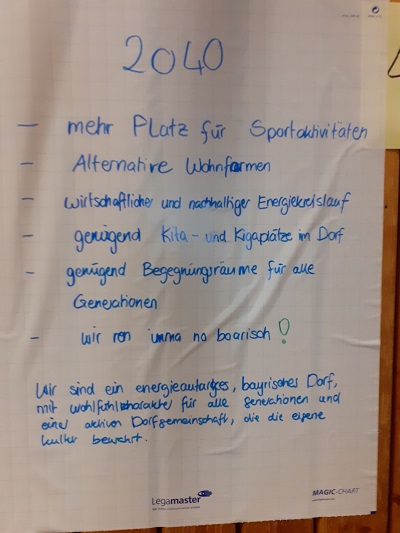 2040
– mehr Platz für Sportaktivitäten
– Alternative Wohnformen
– wirtschaftlicher und nachhaltiger Energiekreislauf
– genügend Kita- und Kigaplätze im Dorf
– genügend Begegnungsräume für alle
Generationen
– wir ren imma no boarisch!
Wir sind ein energieautarkes, bayrisches Dorf,
mit Wohlfühlcharakter für alle Generationen und
einer aktiven Dorfgemeinschaft, die die eigene
Kultur bewahrt.
Legamaster
MAGIC-CHART